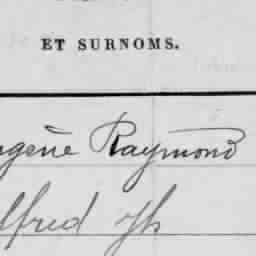 ET SURNOMS.
ugène Raymond
lfred Jh